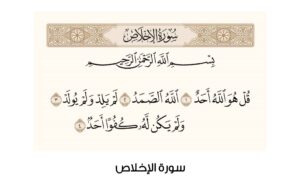 سُورَةُ الإِخْلَاصِ
بِسْمِ اللَّهِ الرَّحْمَٰنِ الرَّحِيمِ
قُلْ هُوَ اللَّهُ أَحَدٌ ١ اللَّهُ الصَّمَدُ ٢ لَمْ يَلِدْ وَلَمْ يُولَدْ ٣
وَلَمْ يَكُن لَّهُ كُفُوًا أَحَدٌ ٤
سورة الإخلاص